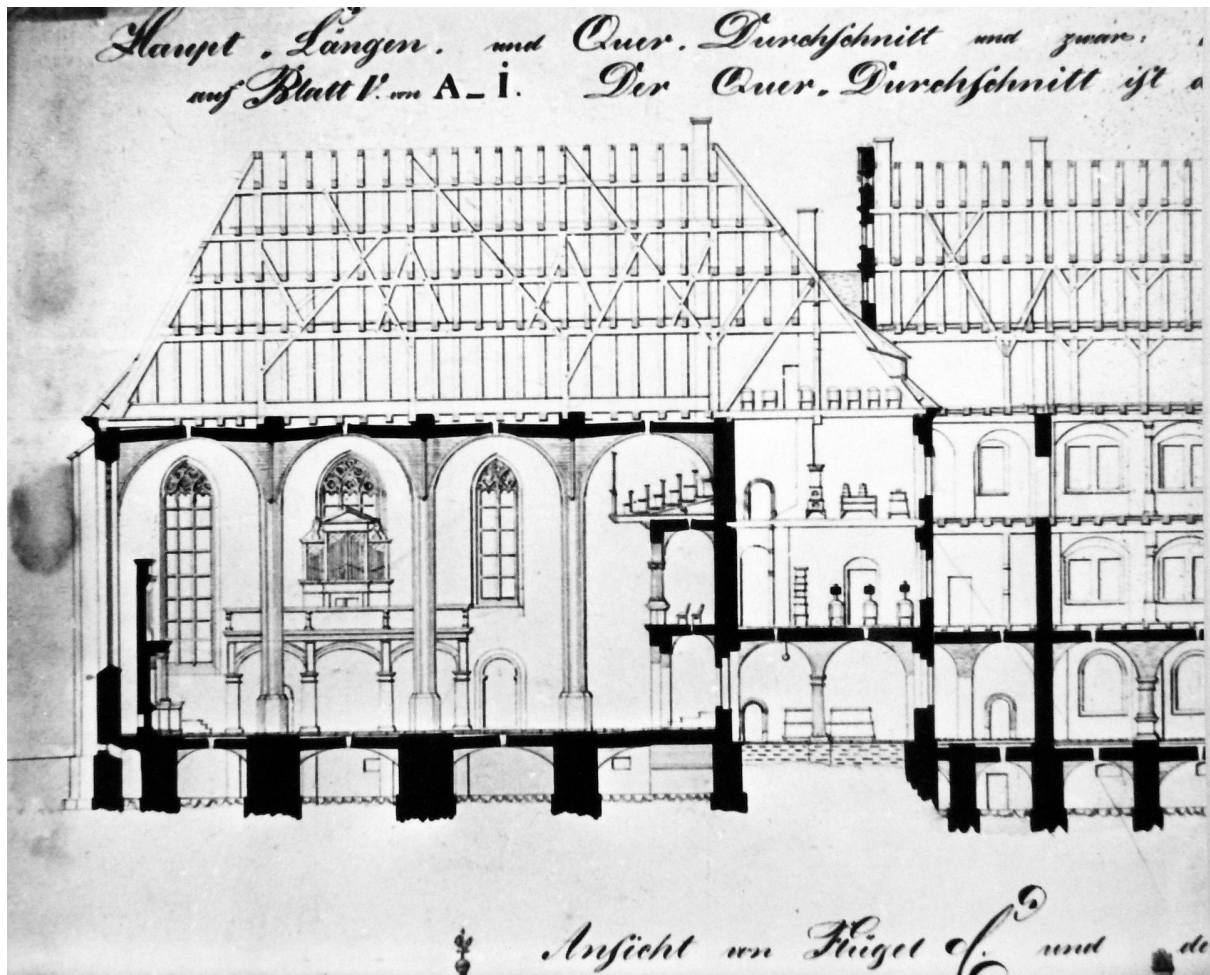 Haupt, Längen. und Quer. Durchschnitt und zwar:
auf Blatt V. von A_I. Der Quer. Durchschnitt ist
Ansicht von Flügel C. und de